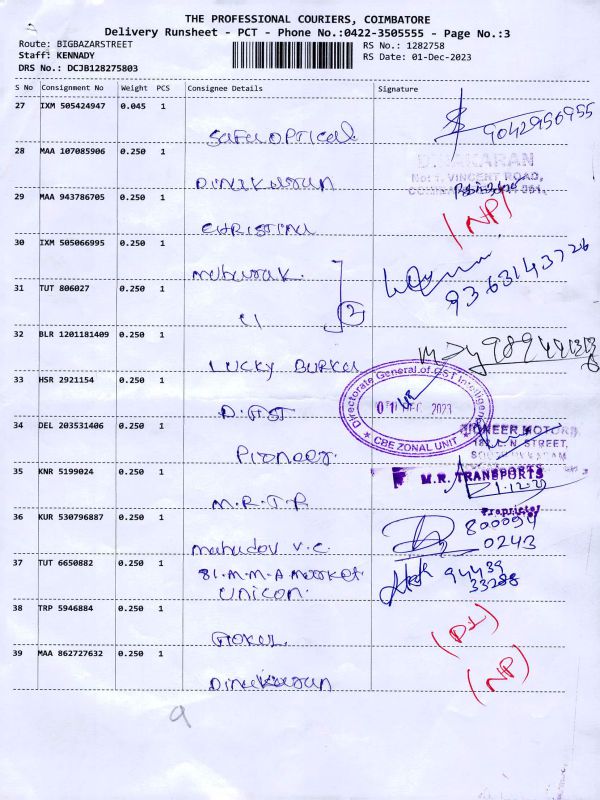 THE PROFESSIONAL COURIERS, COIMBATORE
Delivery Runsheet - PCT - Phone No.:0422-3505555 - Page No.:3
Route: BIGBAZARSTREET
RS No.: 1282758
Staff: KENNADY
RS Date: 01-Dec-2023
DRS No.: DCJB128275803
S No Consignment No Weight PCS Consignee Details Signature
27 IXM 505424947 0.045 1
Safa OPTical
9042956955
28 MAA 107085906 0.250 1
DINAKARAN
No: 1, VINCENT ROAD,
Dinakaran
29 MAA 943786705 0.250 1
(NP)
CHRISTINA
30 IXM 505066995 0.250 1
Mubarak
9363143726
31 TUT 806027 0.250 1
2
11
32 BLR 1201181409 0.250 1
LUCKY BURKA
33 HSR 2921154 0.250 1
Directorate General of GST Intelligence
01 DEC 2023
CBE ZONAL UNIT
D. GST
34 DEL 203531406 0.250 1
PIONEER MOTORS
N STREET,
Pioneer.
35 KNR 5199024 0.250 1
M.R. TRANSPORTS
1.12.23
M.R.T.P
Proprietor
36 KUR 530796887 0.250 1
800094
0243
Mahadev V.C
37 TUT 6650882 0.250 1
81.M.M.A Market
94439
33288
Unicon.
38 TRP 5946884 0.250 1
Gokul
39 MAA 862727632 0.250 1
(NP)
Dinakaran
9